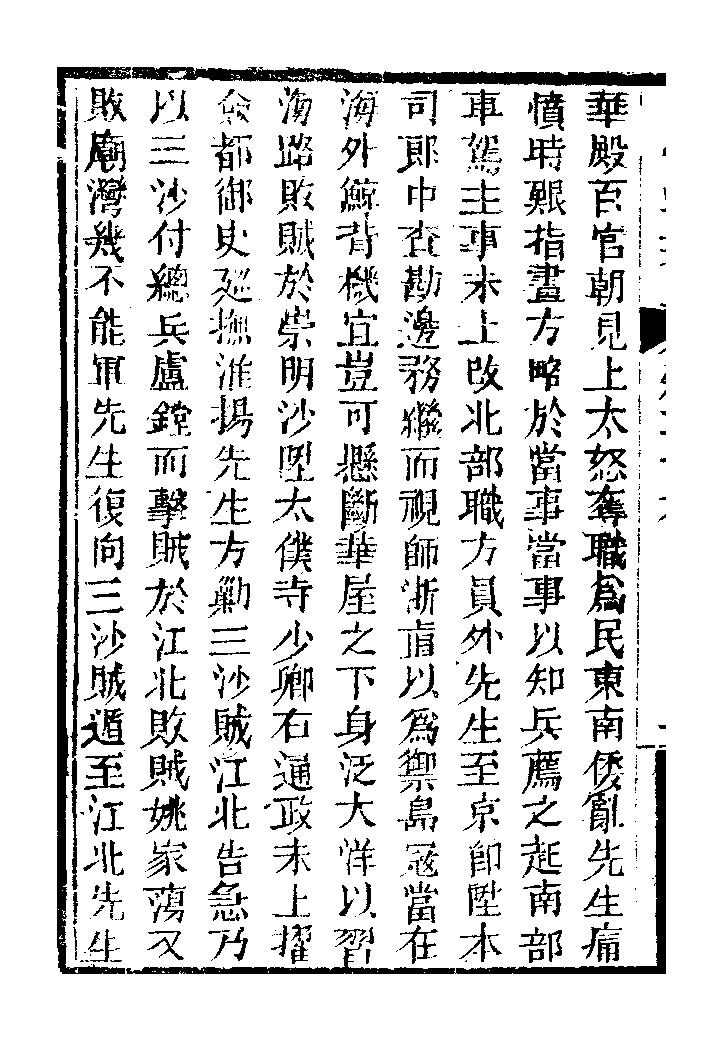 華殿百官朝見上太怒奪職爲民東南倭亂先生痛
憤時艱指畫方略於當事當事以知兵薦之起南部
車駕主事未上改北部職方員外先生至京即陞本
司郎中查勘邊務繼而視師浙直以爲禦島寇當在
海外鯨背機宜豈可懸斷華屋之下身泛大洋以習
海路敗賊於崇明沙陞太僕寺少卿右通政未上擢
僉都御史廵撫淮揚先生方勦三沙賊江北告急乃
以三沙付總兵盧鏜而擊賊於江北敗賊姚家蕩又
敗廟灣幾不能軍先生復向三沙賊遁至江北先生